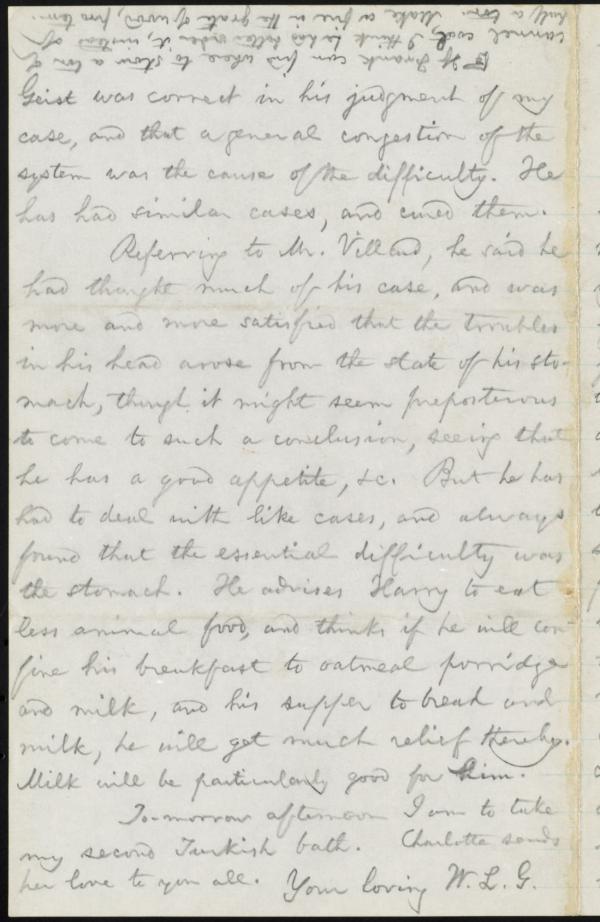 ☞ If Frank can find where to stow a ton of
cannel coal, I think he had better order it, instead of
half a ton. Make a fire in the grate of wood, pro tem.
Geist was correct in his judgment of my
case, and that a general congestion of the
system was the cause of the difficulty. He
has had similar cases, and cured them.
Referring to Mr. Villard, he said he
had thought much of his case, and was
more and more satisfied that the troubles
in his head arose from the state of his sto-
mach, though it might seem preposterous
to come to such a conclusion, seeing that
he has a good appetite, &c. But he has
had to deal with like cases, and always
found that the essential difficulty was
the stomach. He advises Harry to eat
less animal food, and thinks if he will con-
fine his breakfast to oatmeal porridge
and milk, and his supper to bread and
milk, he will get much relief thereby.
Milk will be particularly good for him.
To-morrow afternoon I am to take
my second Turkish bath. Charlotte sends
her love to you all. Your loving W. L. G.